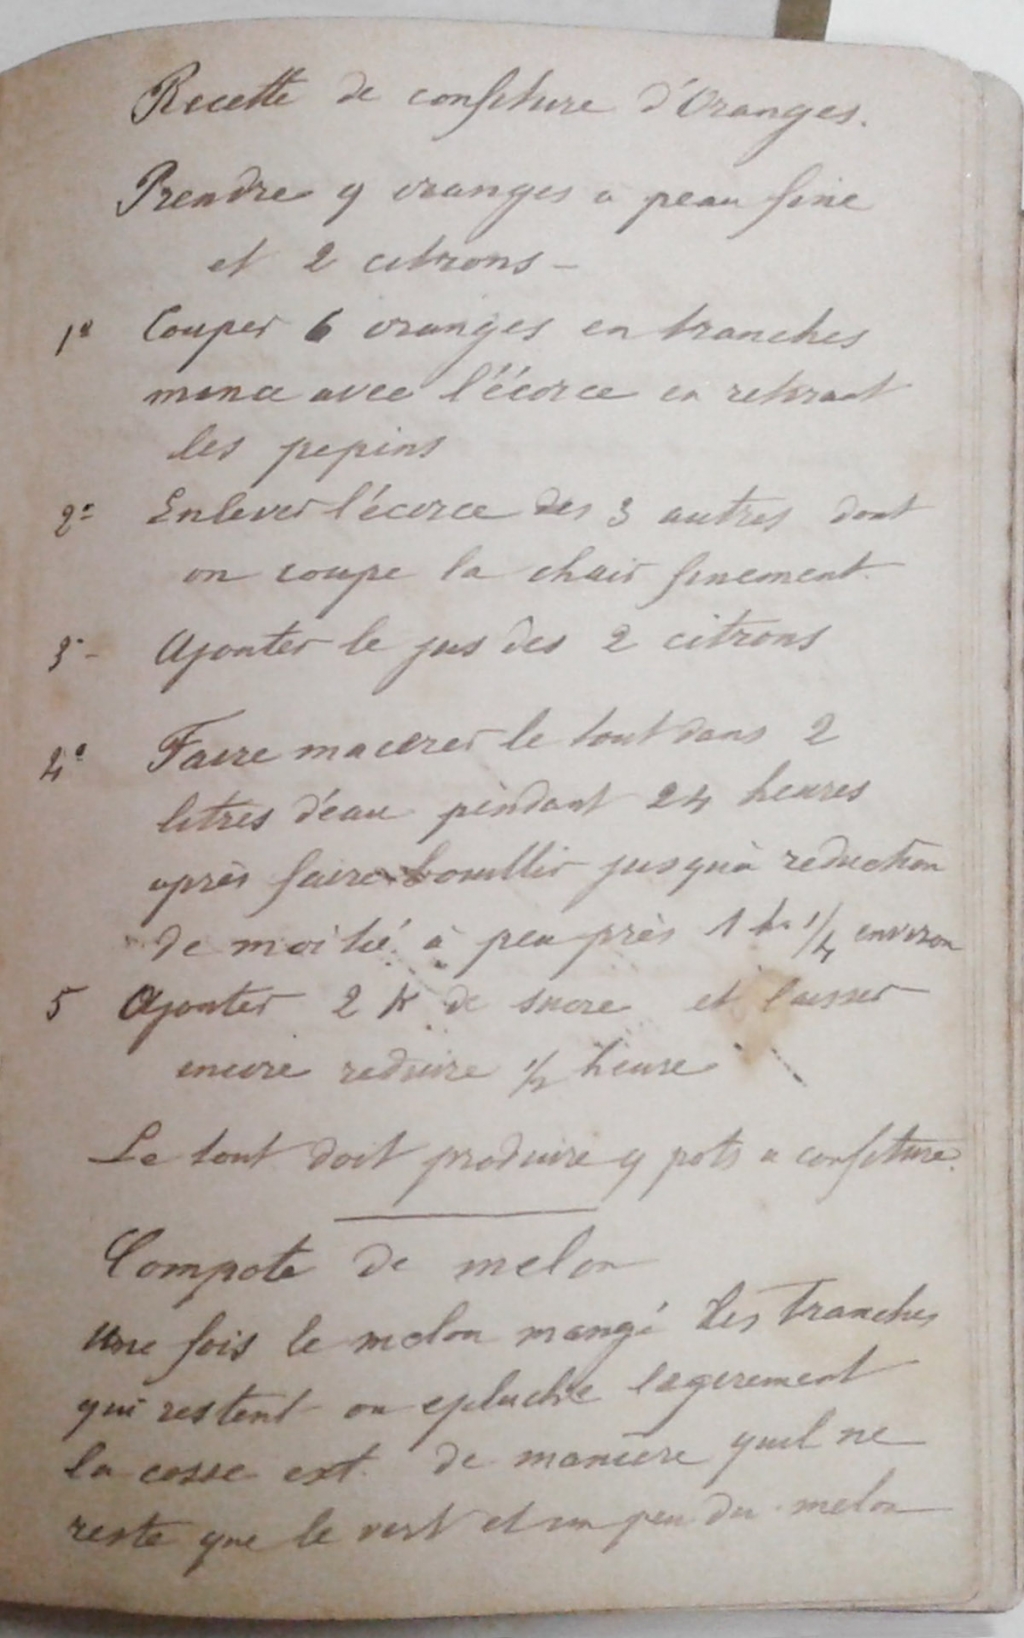 Recette de confiture d'Oranges.
Prendre 9 oranges a peau fine
et 2 citrons -
1º Couper 6 oranges en tranches
mince avec l'écorce en retirant
les pepins
2º Enlever l'écorce des 3 autres dont
on coupe la chair finement.
3º - Ajouter le jus des 2 citrons
4º Faire macerer le tout dans 2
litres d'eau pendant 24 heures
après faire bouillir jusquà reduction
de moitié à peu près 1 h. 1/4 environ
5 Ajouter 2 K de sucre et laisser
encore reduire 1/2 heure
Le tout doit produire 9 pots a confiture.
Compote de melon
Une fois le melon mangé les tranches
qui restent on epluche legerement
la cosse ext. de maniere quil ne
reste que le vert et un peu du melon